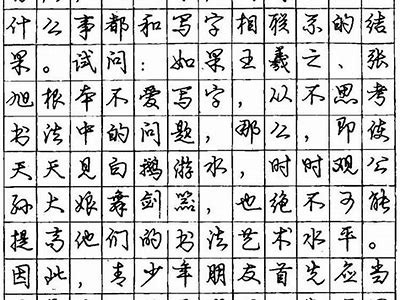 什么事都和写字相联系的结
果。试问：如果王羲之、张
旭根本不爱写字，从不思考
书法中的问题，那么，即使
天天见白鹅游水，时时观公
孙大娘舞剑器，也绝不可能
提高他们的书法艺术水平。
因此，青少年朋友首先应当